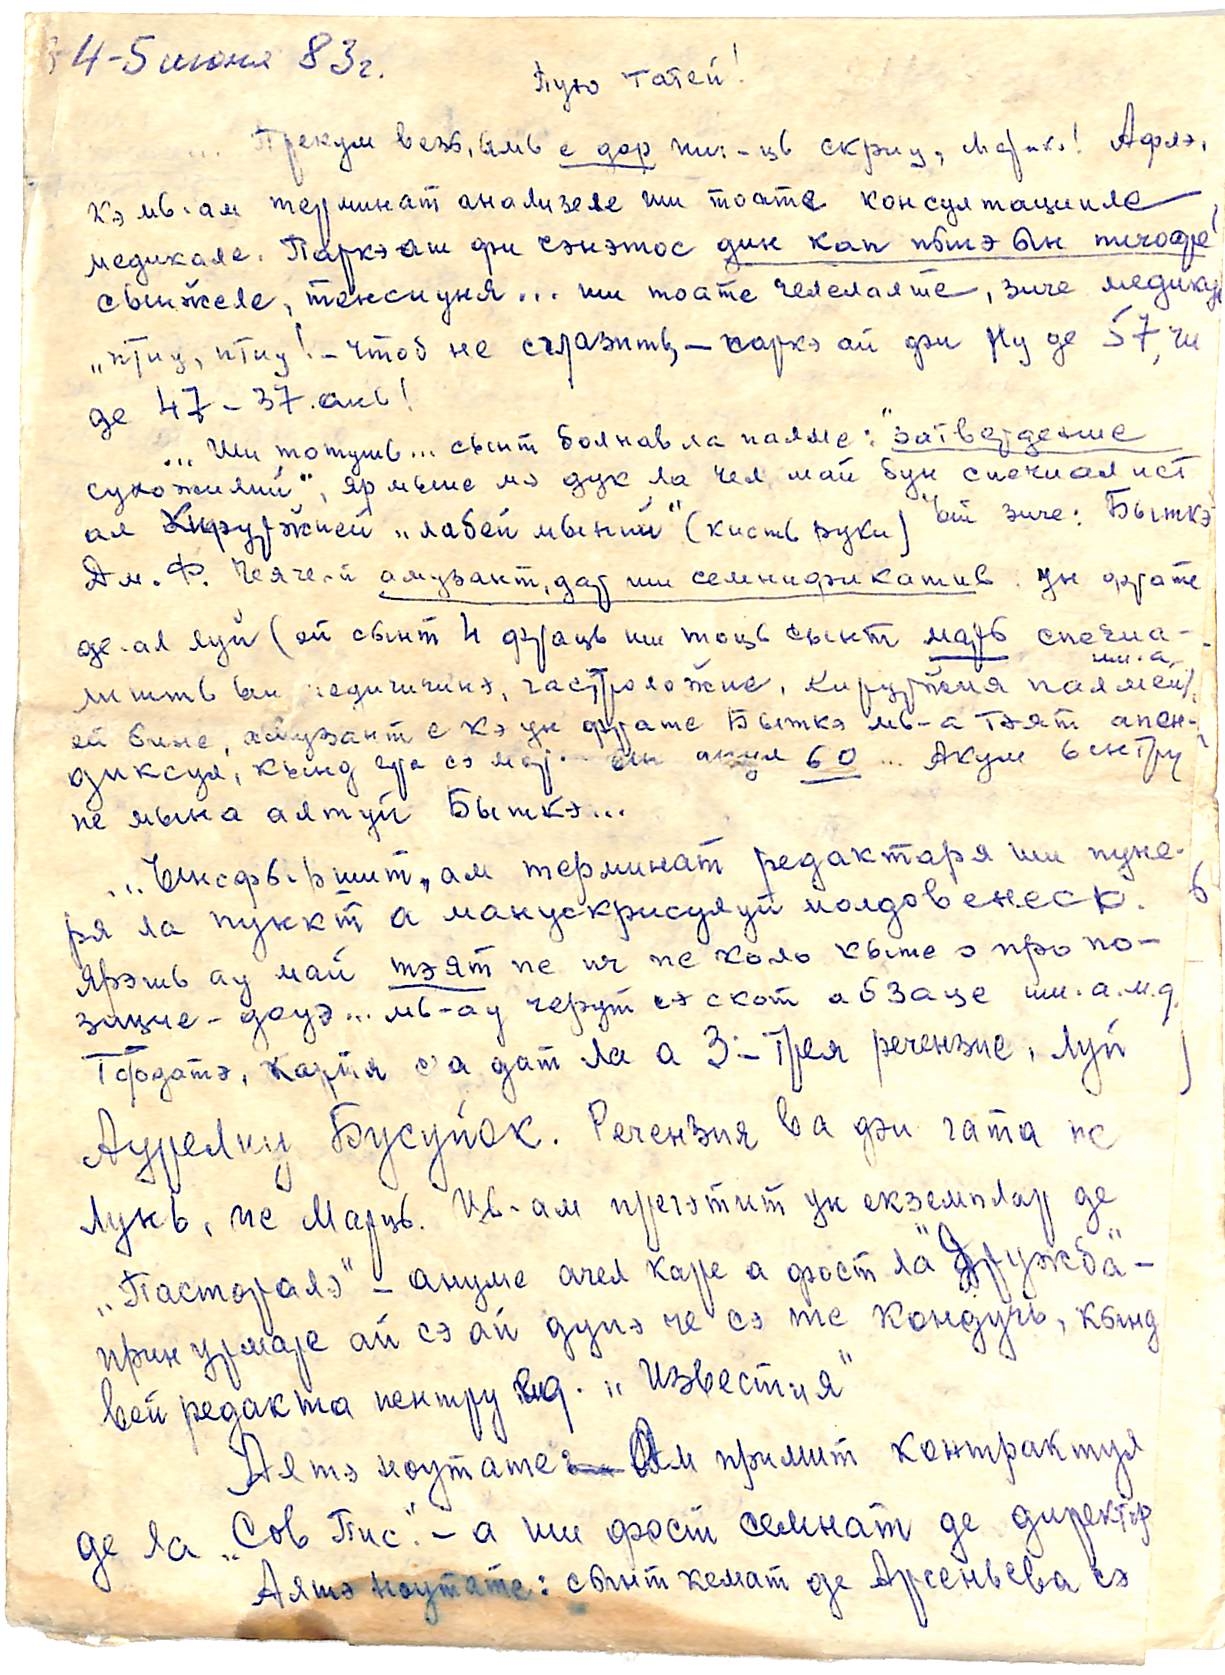 4-5 июня 83г.
Пую татей!
... Прекум везь, ымь е дор ши-ць скриу, Марика! Афлэ,
кэ мь-ам терминат анализеле ши тоате консултацииле
медикале. Паркэ аш фи сэнэтос дин кап пынэ ын пичоаре
сынжеле, тенсиуня... ши тоате челелалте, зиче медикул
„птиу, птиу! - чтоб не сглазить, - паркэ ай фи Ну де 57, чи
де 47-37 ань!
... Ши тотушь... сынт болнав ла палме: "затвердение
сухожилий", яр мыне мэ дук ла чел май бун специалист
ал Хируржией „лабей мыний" (кисть руки) ый зиче: Быткэ
Ам. Ф. Чея че-й амузант, дар ши семнификатив. ун фрате
де-ал луй (ей сынт 4 фраць ши тоць сынт марь специа-
лишть ын медичинэ, гастроложие, хируржия палмей ши.а.
ей бине, амузант е кэ ун фрате Быткэ мь-а тэят апен-
диксул, кынд ера сэ мор ын анул 60 ... Акум ынтру
пе мына алтуй Быткэ...
...Ынсфыршит, ам терминат редактаря ши пуне-
ря ла пункт а манускрисулуй молдовенеск.
Ярэшь ау май тэят пе ич пе коло кыте о пропо-
зицие - доуэ... мь-ау черут сэ скот абзаце ши.а.м.д.
Тодатэ, картя с'а дат ла а 3:-трея рецензие, луй
Аурелиу Бусуйок. Рецензия ва фи гата пе
Лунь, пе Марць. Ць-ам прегэтит ун екземплар де
„Пасторалэ" - ануме ачел каре а фост ла "Дружба" -
прин урмаре ай сэ ай дупэ че сэ те кондучь, кынд
вей редакта пентру ед. „Известия"
Алтэ ноутате: Ам примит контрактул
де ла „Сов Пис." - а ши фост семнат де директор
Алтэ ноутате: сынт кемат де Арсеньева сэ